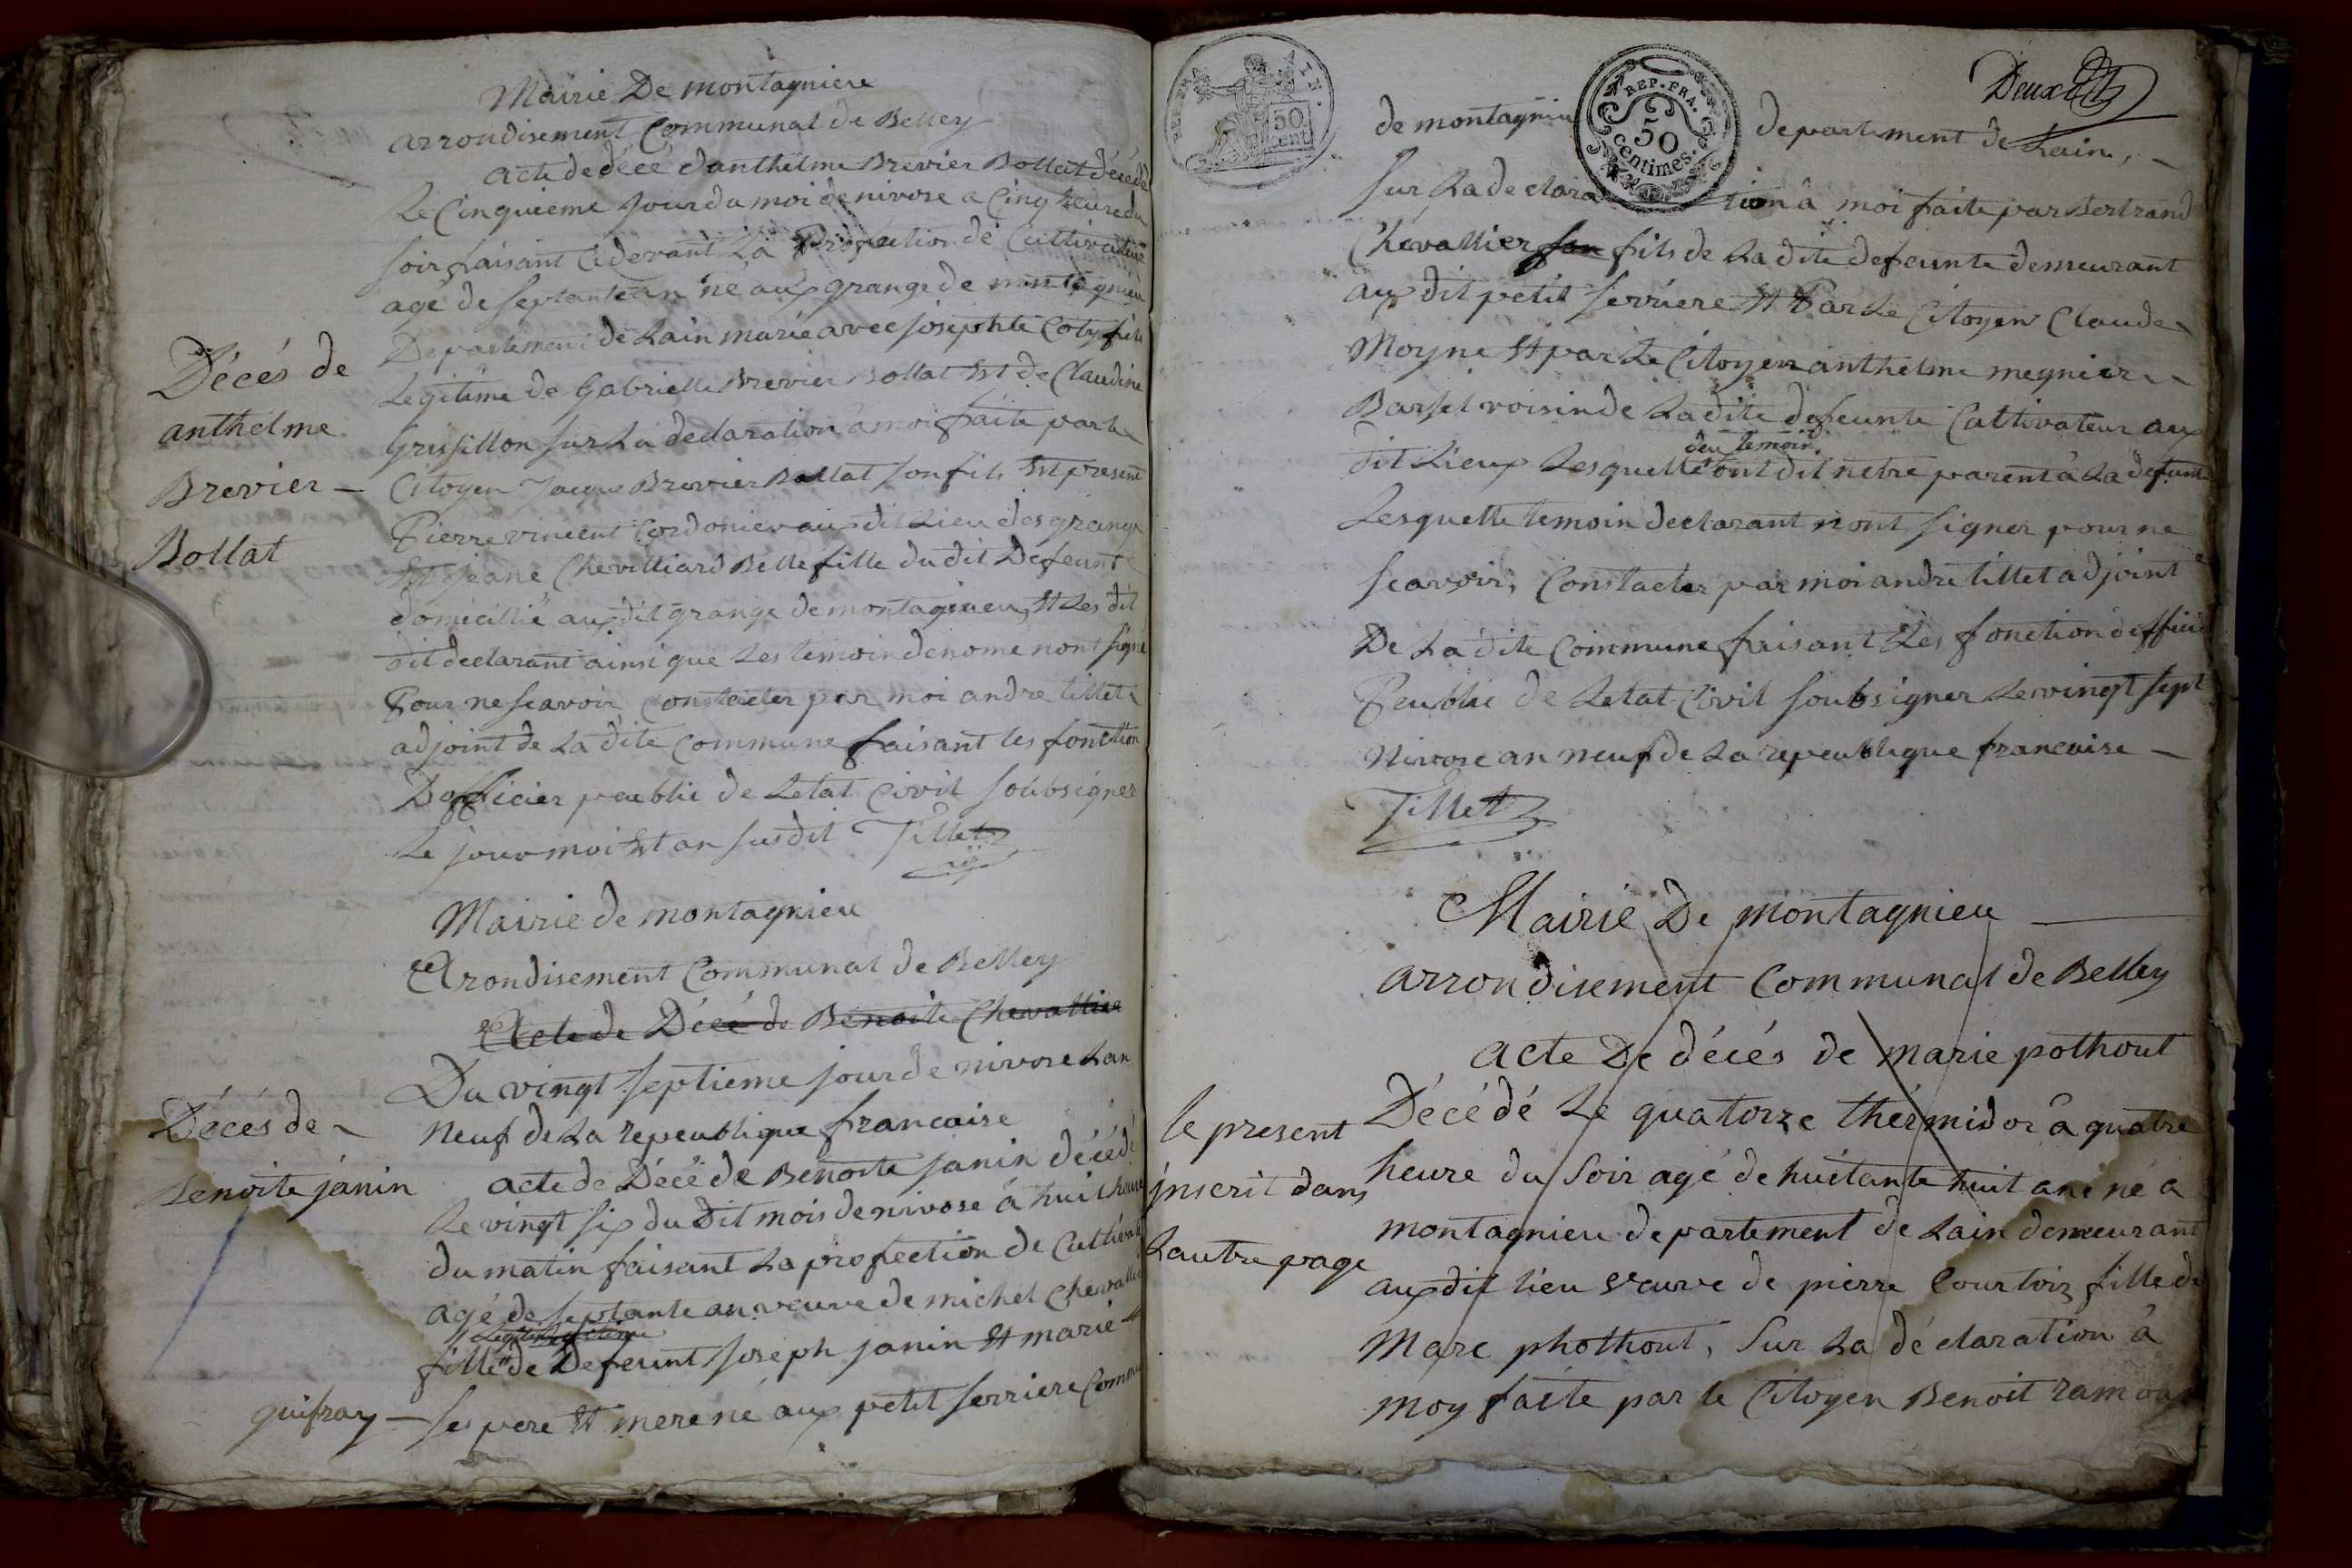 Mairie De montagniere
arrondisement Communal de Belley
acte de décé danthelme Brevier Bollat décédé
Le Cinquieme Jour du moi de nivose a Cinq heure du
soir faisant Cidevant La Profection de Cultivateur
agé de septante an né aux grange de montagnieu
Departement de Lain marié avec josephte Coty fils
Legitime de Gabrielle Brevier Bollat Et de Claudine
Grussillon sur La declaration a moi faite par le
Citoyen Jacque Brevier Bollat son fils Et present
Pierre vincent Cordonier aux dit Lieu des grange
Et Jeane Chevilliard Belle fille du dit Defeunt
domicillié aux dit grange de montagnieu, Et Les dit
dit declarant ainsi que Les temoin denome nont signé
Pour ne scavoir Constacter par moi andre tillet
adjoint de La dite Commune faisant les fonction
Dofficier peublic de Letat Civil soubsigner
Le jour moi Et an susdit Tillet
Décés de
anthelme
Brevier –
Bollat
Mairie de montagnieu
Arondisement Communal de Belley
Acte de Décé de Benoite Chevallier
Du vingt septieme jour de nivose Lan
Neuf de La repeublique francaise
acte de Décé de Benoite janin décédé
Le vingt six du Dit mois de nivose à huit heure
du matin faisant La profection de Cultivat
agé de septante an veuve de michel Chevallie
fille de Defeunt Joseph janin Et marie
guifray – ses pere Et mere né aux petit serriere Commu
Décés de
Benoite janin
Deux
de montagnieu departement de Lain, –
REP. FRA.
50
centimes.
50
cent.
Sur La declaration â moi faite par Bertrand
Chevallier son fils de La dite defeunte demeurant
aux dit petit serriere Et Par Le Citoyen Claude
Moyne Et par Le Citoyen anthelme megnier
Barsel voisin de La dite defeunte Cultivateur aux
deu temoin
dit Lieux Lesquelle ont dit nêtre parent â La defunte
Lesquelle temoin declarant nont signer pour ne
scavoir, Constacter par moi andre tillet adjoint
De La dite Commune faisant Les fonction dofficie
Peublic de Letat Civil soubsigner Le vingt sept
Nivose an neuf de La repeublique francaise –
Tillet
Mairie De montagnieu
arrondisement Communal de Belley
acte De décés de marie pothout
Décédé Le quatorze thérmidor â quatre
heure du Soir agé de huitante huit ans né a
montagnieu departement de Lain demeurant
aux dit lieu veuve de pierre Courtois fille de
Marc phothout, Sur La déclaration â
moy faite par le Citoyen Benoit ramoux
le present
inscrit dans
Lautre page